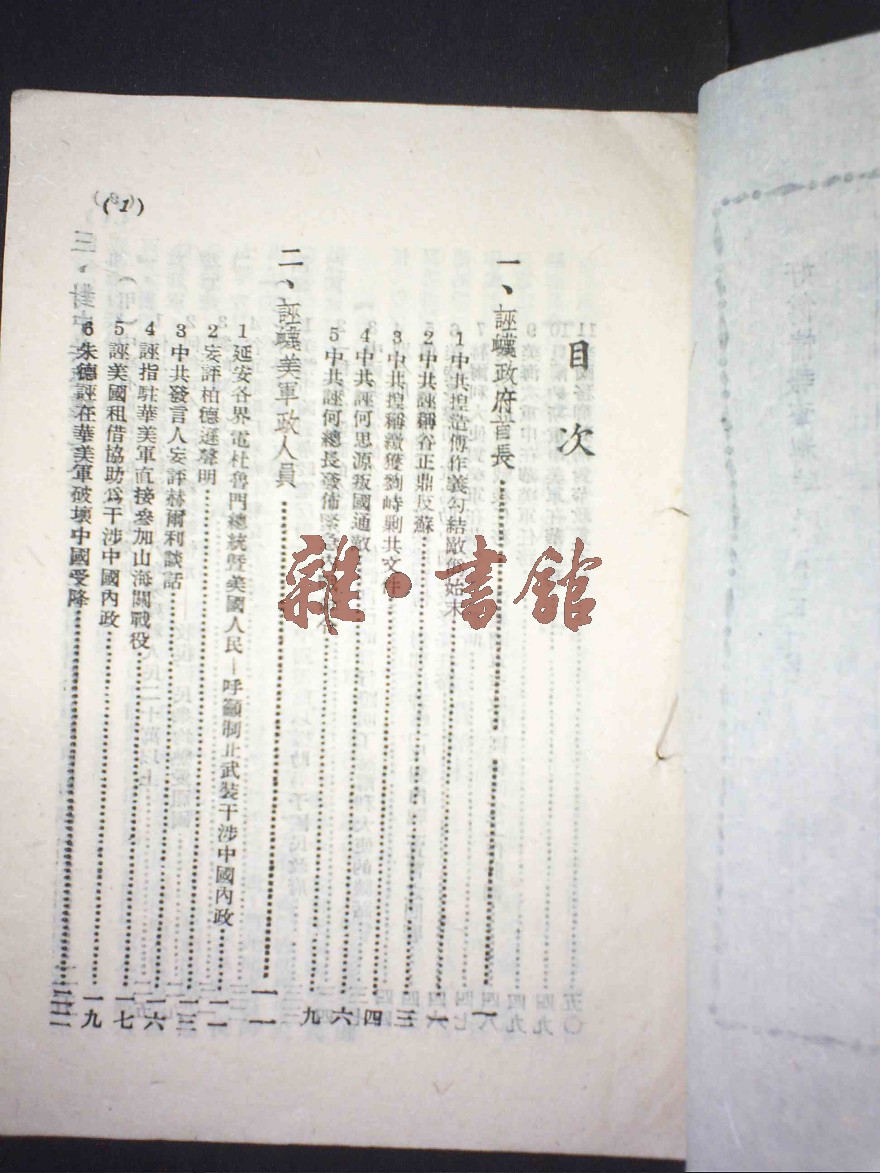 目次
一、誣衊政府首長 一
1 中共揑造傅作義勾結敵僞始末 一
2 中共誣稱谷正鼎反蘇
3 中共揑稱繳獲劉峙剿共文件 三
4 中共誣何思源叛國通敵 四
5 中共誣何總長發佈 六
二、誣衊美軍政人員 一一
1 延安各界電杜魯門總統暨美國人民—呼籲制止武裝干涉中國內政 一一
2 妄評柏德遜聲明
3 中共發言人妄評赫爾利談話 一三
4 誣指駐華美軍直接參加山海關戰役 一六
5 誣美國租借協助爲干涉中國內政 一七
6 朱德誣在華美軍破壞中國受降 一九
(1)
雜·書館